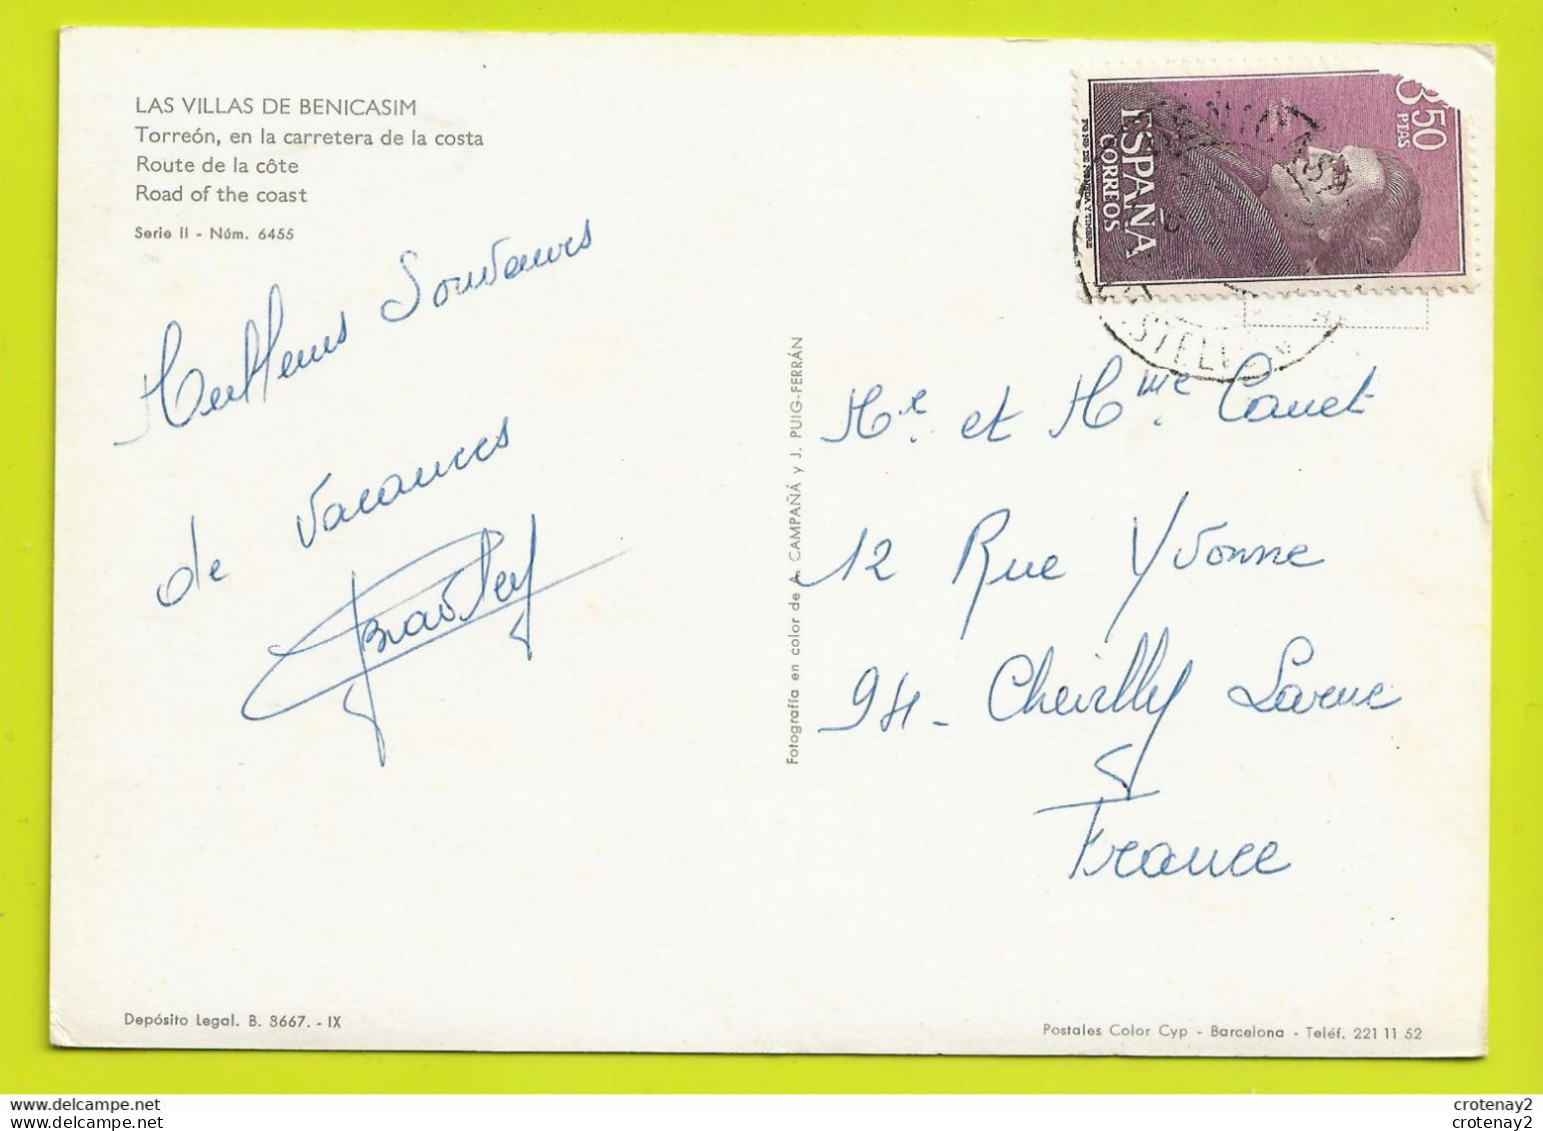 LAS VILLAS DE BENICASIM
Torreón, en la carretera de la costa
Route de la côte
Road of the coast
Serie II - Núm. 6455
Meilleurs Souvenirs
de Vacances
3'50
PTAS
ESPAÑA
CORREOS
Fotografía en color de A. CAMPAÑÁ y J. PUIG-FERRÁN
Mr. et Mme. Canet
12 Rue Yvonne
94- Chevilly Larue
France
Depósito Legal. B. 8667. - IX
Postales Color Cyp - Barcelona - Teléf. 221 11 52
crotenay2
crotenay2
crotenay2
crotenay2